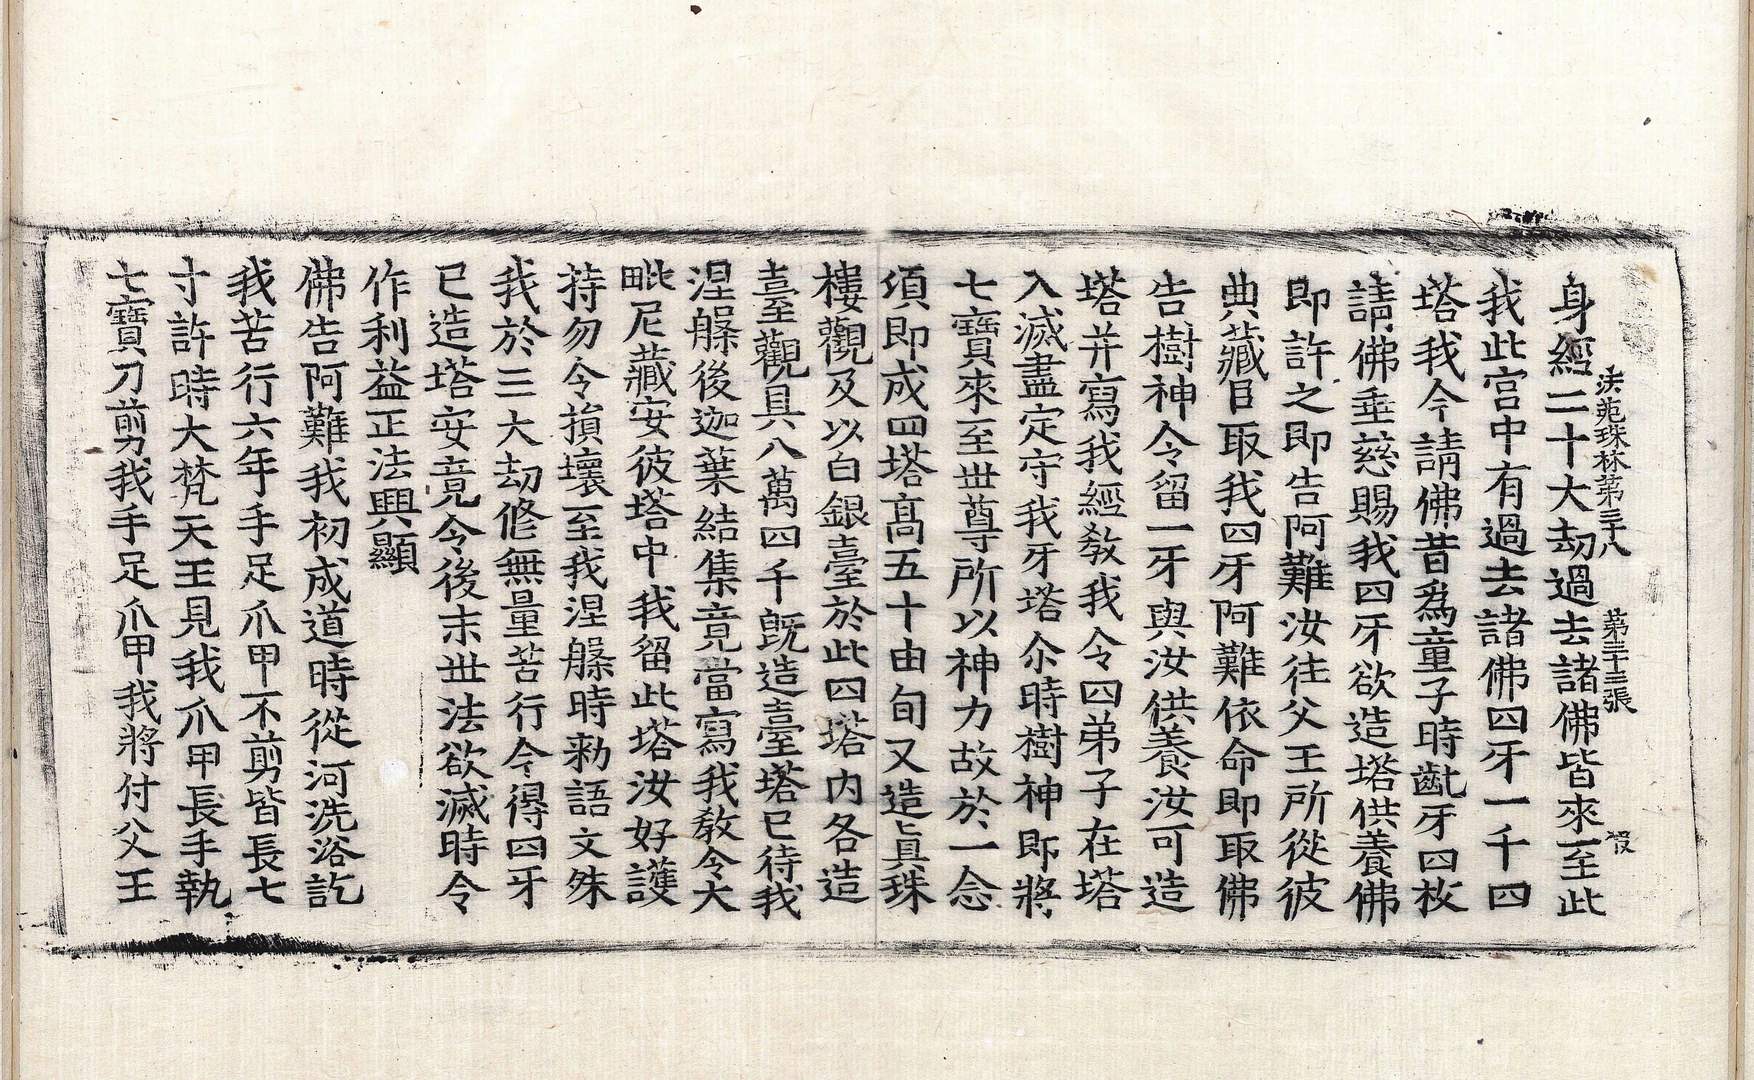 法苑珠林第三十八 第二十三張 假
身經二十大劫過去諸佛皆來至此
我此宮中有過去諸佛四牙一千四
塔我今請佛昔爲童子時齓牙四枚
請佛垂慈賜我四牙欲造塔供養佛
即許之即告阿難汝往父王所從彼
典藏臣取我四牙阿難依命即取佛
告樹神令留一牙與汝供養汝可造
塔并寫我經教我令四弟子在塔
入滅盡定守我牙塔尒時樹神即將
七寶來至世尊所以神力故於一念
須即成四塔高五十由旬又造眞珠
樓觀及以白銀臺於此四塔内各造
臺觀具八萬四千既造臺塔已待我
涅槃後迦葉結集竟當寫我教令大
毗尼藏安彼塔中我留此塔汝好護
持勿令損壞至我涅槃時勑語文殊
我於三大劫修無量苦行今得四牙
已造塔安竟今後末世法欲滅時令
作利益正法興顯
佛告阿難我初成道時從河洗浴訖
我苦行六年手足爪甲不剪皆長七
寸許時大梵天王見我爪甲長手執
七寶刀剪我手足爪甲我將付父王